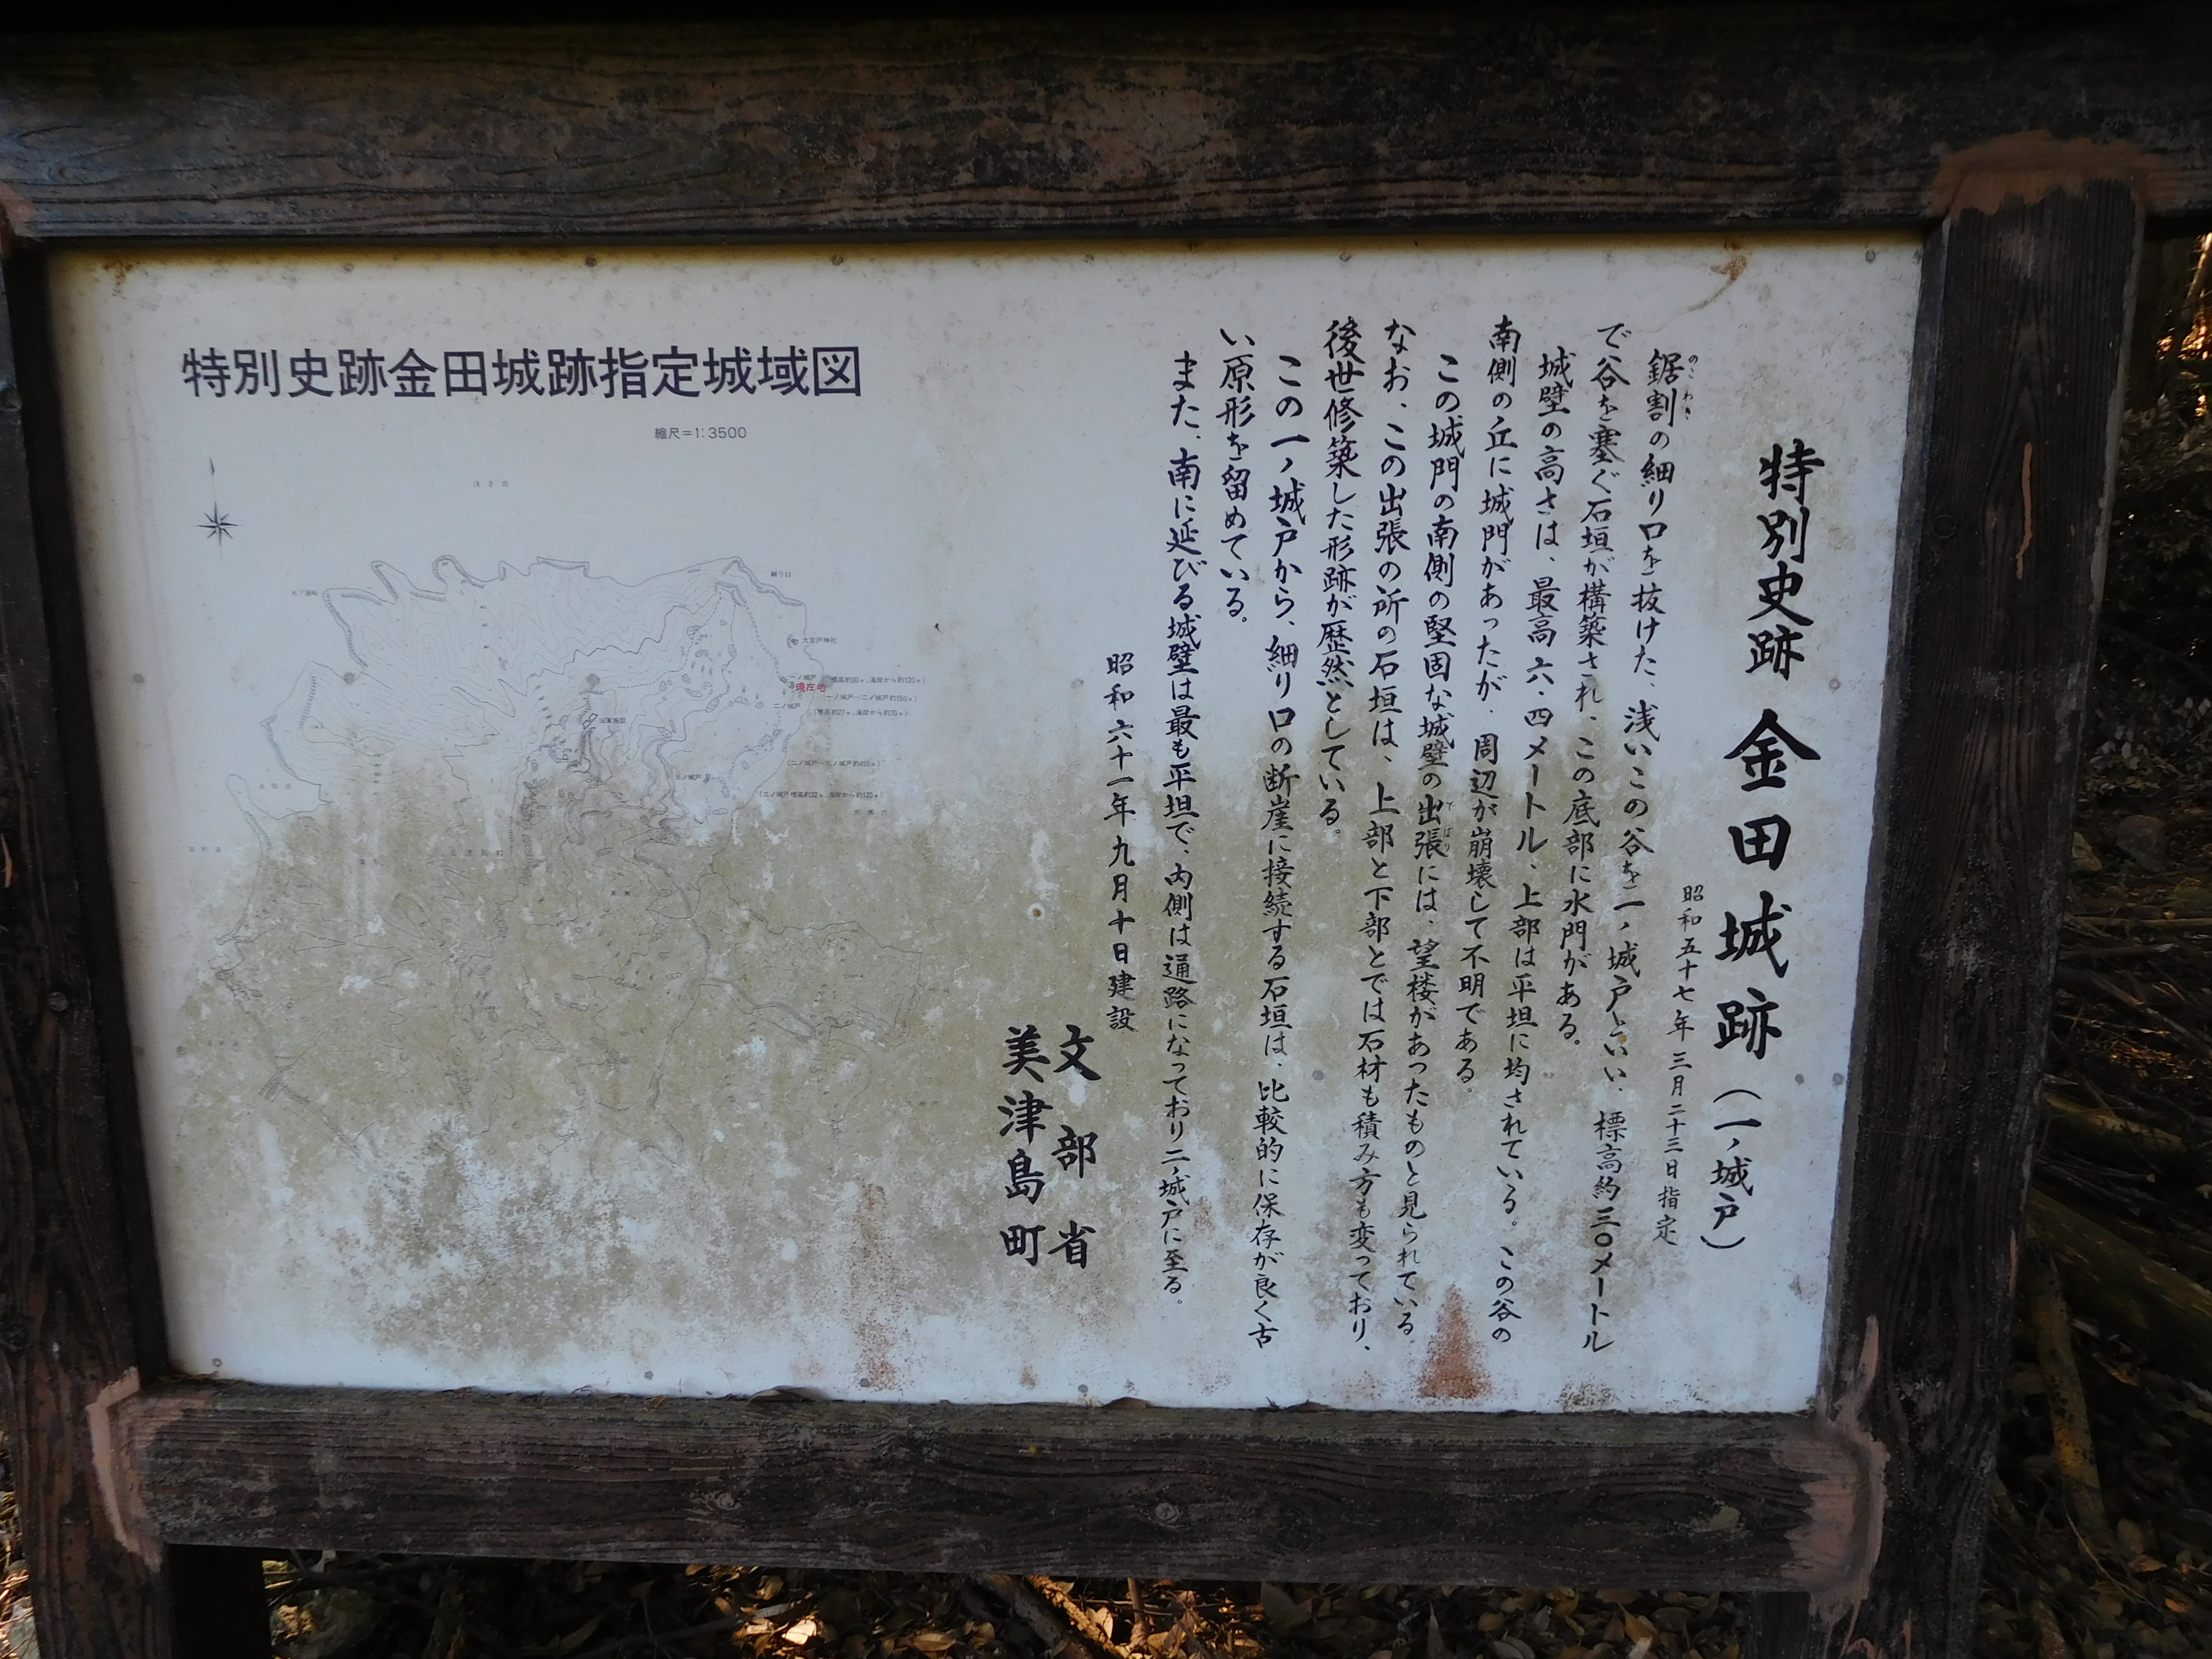 特別史跡 金田城跡(一ノ城戸)
昭和五十七年三月二十三日指定
鋸割の細り口を抜けた、浅いこの谷を一ノ城戸といい、標高約三〇メートル
のこわき
で谷を塞ぐ石垣が構築され、この底部に水門がある。
城壁の高さは、最高六・四メートル、上部は平坦に均されている。この谷の
南側の丘に城門があったが、周辺が崩壊して不明である。
この城門の南側の堅固な城壁の出張には、望楼があったものと見られている
でばり
なお、この出張の所の石垣は、上部と下部とでは石材も積み方も変っており、
後世修築した形跡が歴然としている。
この一ノ城戸から、細り口の断崖に接続する石垣は、比較的に保存が良く古
い原形を留めている。
また、南に延びる城壁は最も平坦で、内側は通路になっており二ノ城戸に至る。
昭和六十一年九月十日建設
文部省
美津島町
特別史跡金田城跡指定城域図
縮尺=1:3500
細り口
大吉戸神社
一ノ城戸
現在地
(一ノ城戸〜二ノ城戸約150m)
二ノ城戸
旧軍施設
三ノ城戸